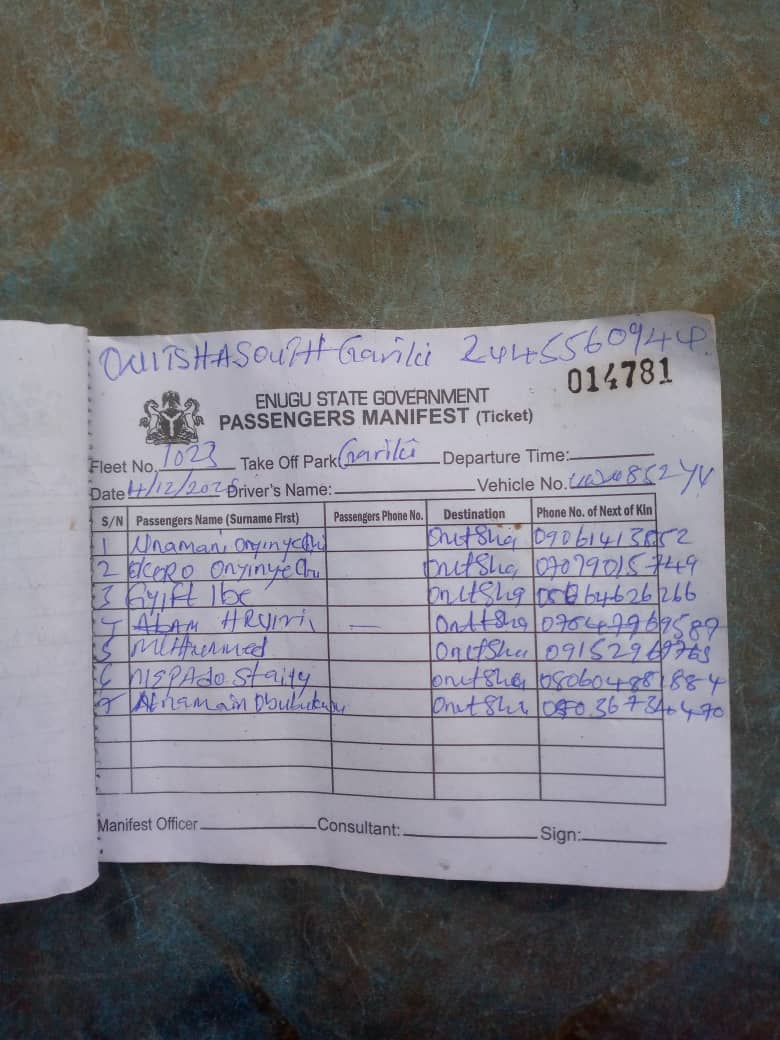 ONITSHA SOUTH Gariki 2445560944
014781
ENUGU STATE GOVERNMENT
PASSENGERS MANIFEST (Ticket)
Fleet No. 1023 Take Off Park Gariki Departure Time:
Date 4/12/2025 Driver's Name: Vehicle No. 852YV
S/N Passengers Name (Surname First) Passengers Phone No. Destination Phone No. of Next of Kin
1 Nnamani Onyinyechi Onitsha 09061413852
2 Okoro Onyinyechu Onitsha 07079015749
3 Gyift Ibe Onitsha 08064626266
4 — Onitsha 07047969587
5 Muhammed Onitsha 09152969763
6 Onitsha 080604881884
7 Nnamani Onitsha
Manifest Officer Consultant: Sign: